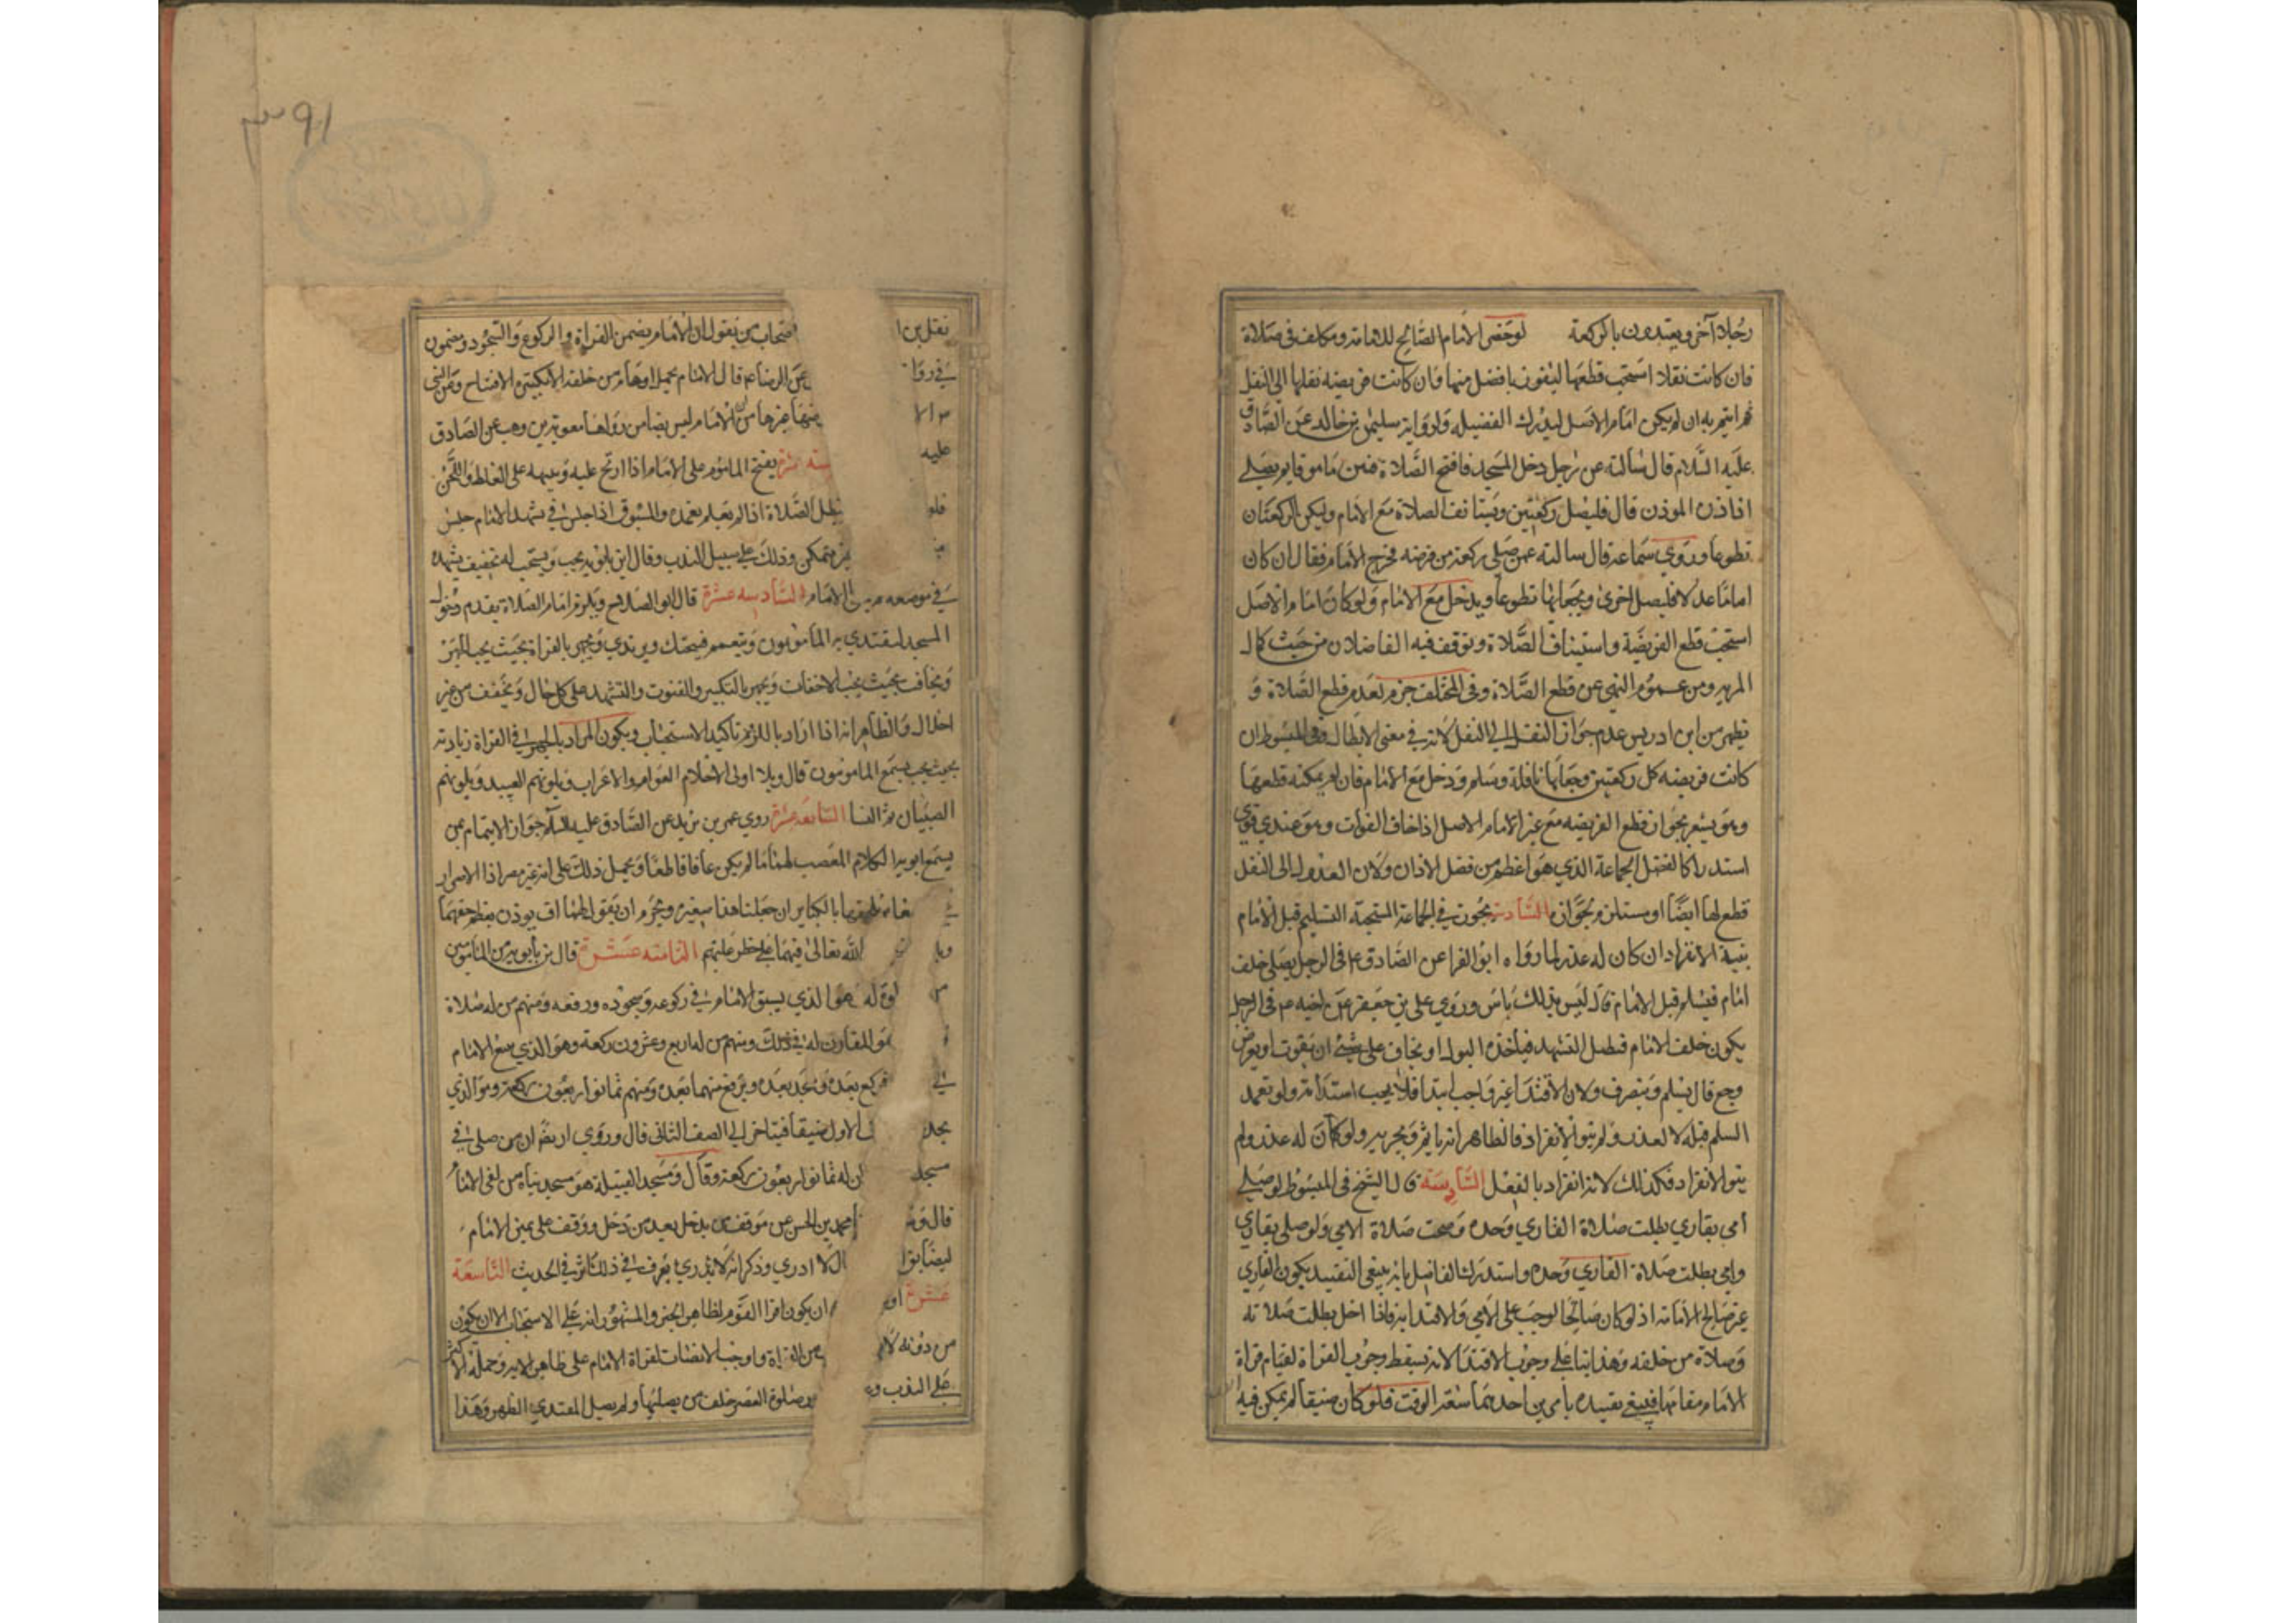 رجلا آخر ويعتدون بالركعة لو حضر الامام الصالح للامامة ومكلف في صلاة
فان كانت نفلا استحب قطعها ليفوز بافضل منها وان كانت فريضه نقلها الى النفل
ثم ايتم به ان لم يكن امام الاصل ليدرك الفضيله ولرواية سليمن بن خالد عن الصادق
عليه السلام قال سالته عن رجل دخل المسجد فافتتح الصلاة فبين ما هو قايم يصلي
اذا اذن الموذن قال فليصل ركعتين ويستانف الصلاة مع الامام وليكن الركعتان
تطوعا وروي سماعة قال سالته عمن صلى ركعة من فرضه فخرج الامام فقال ان كان
اماما عدلا فليصل اخرى ويجعلها تطوعا ويدخل مع الامام ولو كان امام الاصل
استحب قطع الفريضة واستيناف الصلاة وتوقف فيه الفاضلان من حيث كمال
المزيه ومن عموم النهي عن قطع الصلاة وفي المختلف جزم بعدم قطع الصلاة و
يظهر من ابن ادريس عدم جواز النقل الى النفل لانه في معنى الابطال وفي المبسوط ان
كانت فريضه كمل ركعتين وجعلها نافلة وسلم ودخل مع الامام فان لم يمكنه قطعها
وهو يشعر بجواز قطع الفريضه مع غير الامام الاصل اذا خاف الفوات وهو عندي قوي
استدراكا لفضل الجماعة الذي هو اعظم من فضل الاذان ولان العدول الى النفل
قطع لها ايضا او مستلزم لجوازه السادسة يجوز في الجماعة المستحبة التسليم قبل الامام
بنية الانفراد ان كان له عذر لما رواه ابو الغرا عن الصادق ع في الرجل يصلي خلف
امام فيسلم قبل الامام قال ليس بذلك باس وروي علي بن جعفر عن اخيه ع في الرجل
يكون خلف الامام فيطيل التشهد فياخذه البول او يخاف على شئ ان يفوت او يعرض
وجع قال يسلم وينصرف ولان الاقتدا غير واجب ابتدا فلا يجب استدامة ولو تعمد
السلم قبله لا لعذر ولم ينو الانفراد فالظاهر انه ياثم ويجزيه ولو كان له عذر ولم
ينو الانفراد فكذلك لانه انفراد بالفعل السادسة قال الشيخ في المبسوط لو صلى
امي بقاري بطلت صلاة القاري وحده وصحت صلاة الامي ولو صلى بقاري
وامي بطلت صلاة القاري وحده واستدرك الفاضل بانه ينبغي التقييد بكون القاري
غير صالح للامامة اذ لو كان صالحا لوجب على الامي الاقتدا به فاذا اخل بطلت صلاته
وصلاة من خلفه وهذا بنا على وجوب الاقتدا لانه يسقط وجوب القراة لقيام قراة
الامام مقامها فينبغي تقييده بامرين احدهما سعة الوقت فلو كان ضيقا لم يمكن فيه
٣٩١
نقل بن ا اصحاب من يقول ان الامام يضمن القراة والركوع والسجود ومضمون
في روا عن الرضا ع قال الامام يحمل اوهام من خلفه الا تكبيرة الافتتاح وعن
م الا من ان الامام ليس بضامن رواها معوية بن وهب عن الصادق
عليه يفتح الماموم على الامام اذا ارتج عليه وينبهه على الغلط واللحن
فلو تبطل الصلاة اذا لم يعلم بعمده والمسبوق اذا جلس في تشهد الامام جلس
غير متمكن وذلك على سبيل الندب وقال ابن بابويه يجب ويستحب له تخفيف تشهده
في موضعه الامام السادسه عشرة قال ابو الصلاح ويلزم امام الصلاة تقدم دخول
المسجد ليقتدي به المامومون ويتعمم فيحنك ويرتدي ويجهر بالقراة بحيث يجب الجهر
ويخافت بحيث يجب الاخفات ويجهر بالتكبير والقنوت والتشهد على كل حال ويخفف من غير
اخلال والظاهر انه اذا اراد باللزوم تاكيد الاستحباب ويكون المراد بالجهر في القراة زيادته
بحيث يسمع المامومون قال ويلا اولى الاحلام العوام والاعراب ويلونهم العبيد ويلونهم
الصبيان ثم النسا السابعة عشرة روي عمر بن يزيد عن الصادق عليه السلام جواز الايتمام بمن
يسمع ابويه الكلام المغضب لهما ما لم يكن عاقا قاطعا ويحمل ذلك على انه غير مصر اذ الاصرار
بالكباير ان جعلنا هذا صغيرة ويحرم ان يقول لهما اف يوذن بعظم حقهما
الله تعالى فيهما على خطر عليهم الثامنه عشرة قال بن بابويه من المامومين
من لا صلاة له هو الذي يسبق الامام في ركوعه وسجوده ورفعه ومنهم من له صلاة
هو المقارن له في ذلك ومنهم من له اربع وعشرون ركعة وهو الذي يتبع الامام
في فيركع بعده ويسجد بعده ويرفع منهما بعده ومنهم ثمانو اربعون ركعة وهو الذي
يجد الاول ضيقا فيتاخر الى الصف الثاني قال وروي ايضا ان من صلى في
مسجد ان له ثمانو اربعون ركعة وقال ومسجد القبيلة هو مسجد بناه
قال و محمد بن الحسن عن موقف من يدخل بعد من دخل ووقف على يمين الامام
لتضايق لا ادري وذكر انه لا يدري يعرف في ذلك اثر في الحديث التاسعة
عشرة ان يكون اقرا القوم لظاهر الخبر والمشهور انه على الاستحباب الا ان يكون
من دونه من القراة واوجب الانصات لقراة الامام على ظاهر الاية وحمله الاكثر
على الندب و صلوة العصر خلف من يصليها ولم يصل المقتدي الظهر وهذا